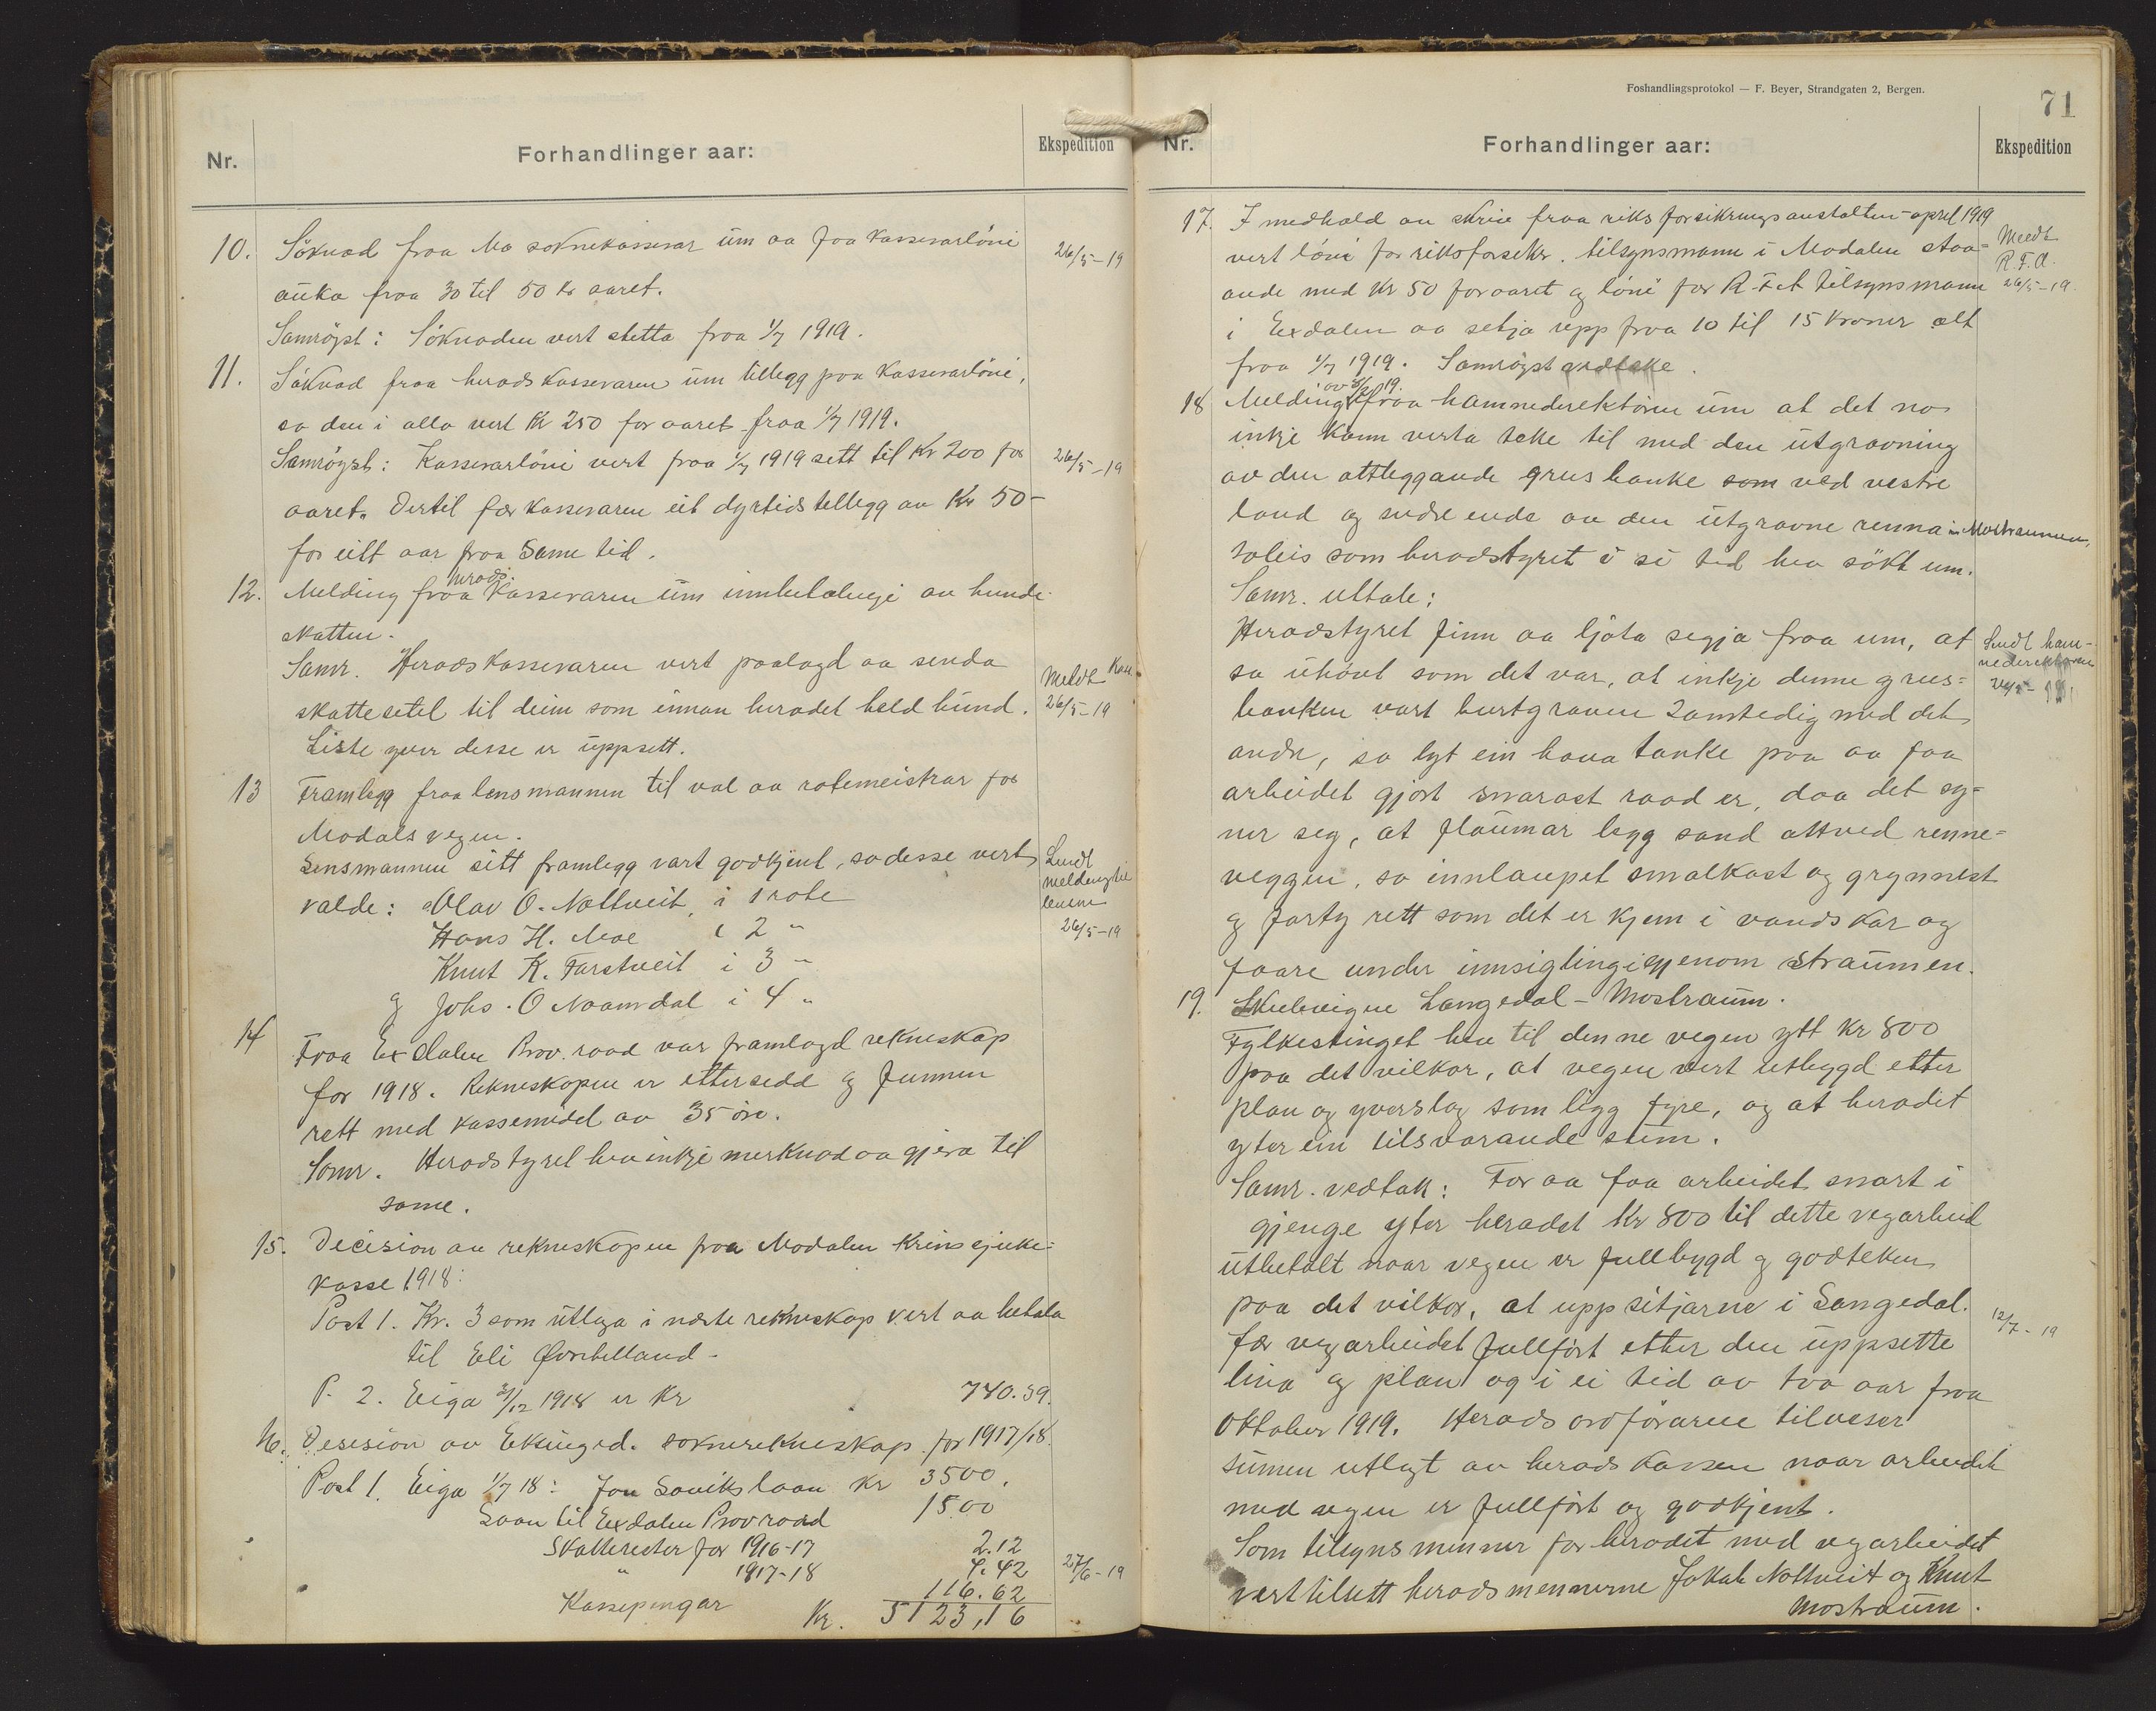 Nr.
Forhandlinger aar:
Ekspedition
10. Söknad fraa Mo soknekasserar üm aa faa kasserarlöni
26/5-19
auka fraa 30 til 50 kr aaret.
Samröyst: Söknaden vert stetta fraa 1/7 1919.
11. Söknad fraa heradskasseraren üm tillegg paa kasserarlöni,
so den i alla vert kr 250 for aaret fraa 1/7 1919.
Samröyst: Kasserarlöni vert fraa 1/7 1919 sett til kr 200 for
26/5-19
aaret. Dertil fær kasseraren eit dyrtidstillegg av kr 50-
for eitt aar fraa same tid.
12. Melding fraa herads kasseraren üm innbetalingi av hunde-
skatten.
Samr. Heradskasseraren vert paalagd aa senda
Meldt Kas.
skattesetel til deim som innan heradet held hünd.
26/5-19
Liste yver desse er üppsett.
13 Framlegg fraa lensmannen til val av rotemeistrar for
Modalsvegen.
Lensmannen sitt framlegg vart godkjent, so desse vert
Sendt
melding til
valde: Olav O. Nottveit i 1 rote
lensm
Hans H. Moe i 2 "
26/5-19
Knut K. Farstveit i 3 "
og Johs. O Naamdal i 4 "
14 Fraa Exdalen Prov. raad var framlagd rekneskap
for 1918. Rekneskapen er ettersedd og funnen
rett med kassemidel av 35 öre.
Samr. Heradstyret hev inkje merknad aa gjera til
same.
15. Decision av rekneskapen fraa Modalen krinssjuke-
kasse 1918:
Post 1. Kr. 3 som ütlega i næste rekneskap vert aa betala
til Eli Övrehelland-
P. 2. Eiga 31/12 1918 er kr 740.39.
16. Desesion av Eksinged. soknerekneskap for 1917/18.
Post 1. Eiga 1/7 18: Jon Saviks laan kr 3500.
Laan til Exdalen Provraad 1500
Skatterester for 1916-17 2.12
" 1917-18 4.42
27/6-19
Kassepengar 116.62
Kr. 5123,16
Foshandlingsprotokol — F. Beyer, Strandgaten 2, Bergen.
71
Nr.
Forhandlinger aar:
Ekspedition
17. I medhald av skriv fraa riksforsikringsanstalten-apret 1919
vert löni for riksforsekr. tilsynsmann i Modalen staa-
Meldt
R.F.A.
ande med kr 50 for aaret og löni for R-F-A tilsynsmann
26/5-19.
i Exdalen aa setja upp fraa 10 til 15 kroner alt
fraa 1/7 1919. Samröyst vedteke.
18 Melding av 8/2 19. fraa hamnedirektören üm at det no
inkje kann verta teke til med den ütgravning
av den attleggande grusbanke som ved vestre
land og sudre ende av den ütgravne renna i Mostraumen,
soleis som heradstyret i si tid hev sökt um.
Samr. uttale:
Heradstyret finn aa ljota segja fraa um, at
Sendt ham-
nedirektören
so uhövt som det var, at inkje denne grus-
26/5-
banken vart burtgraven samtidig med det
andre, so lyt ein hava tanke paa aa faa
arbeidet gjort snarast raad er, daa det sy-
ner seg, at flaumar legg sand attved renne-
veggen, so innlaupet smalkast og grynnest
og farty rett som det er kjem i vandskar og
faare under innsiglingi gjenom straumen.
19. Skulevegen Langedal-Mostraum.
Fylkestinget hev til denne vegen ytt kr 800
paa det vilkor, at vegen vert utbygd etter
plan og yverslag som ligg fyre, og at heradet
yter ein tilsvarande süm.
Samr. vedtak: For aa faa arbeidet snart i
gjenge yter heradet kr 800 til dette vegarbeid
ütbetalt naar vegen er fullbygd og godteken
paa det vilkor, at uppsitjarne i Langedal.
12/7-19
fær vegarbeidet fullfört etter den üppsette
lina og plan og i ei tid av tvo aar fraa
oktober 1919. Heradsordföraren tilveser
sümen utlagt av heradskassen naar arbeidet
med vegen er fullfört og godkjent.
Som tilsynsmenner for heradet med vegarbeidet
vert tilsett heradsmennerne Jakob Nottveit og Knut
Mostraum.